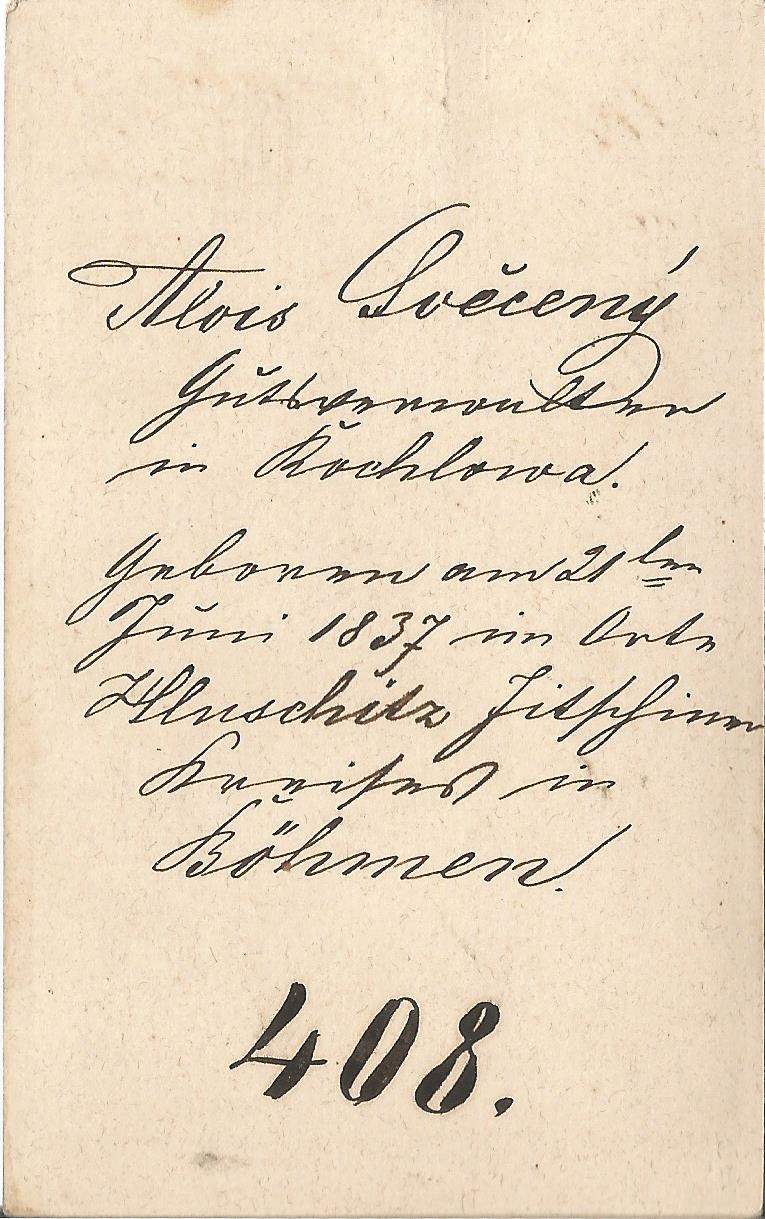 Alois Svěcený
Gutsverwalter
in Kochlowa.
Geboren am 21ten
Juni 1837 im Orte
Hluschitz Jitschiner
Kreises in
Böhmen.
408.